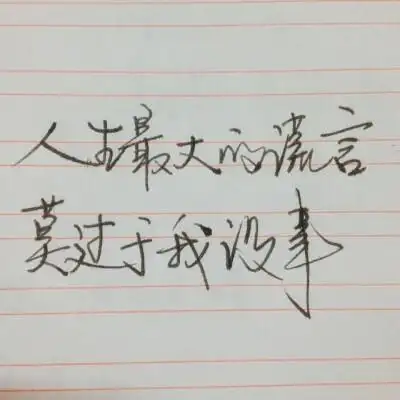 人生最大的谎言
莫过于我没事